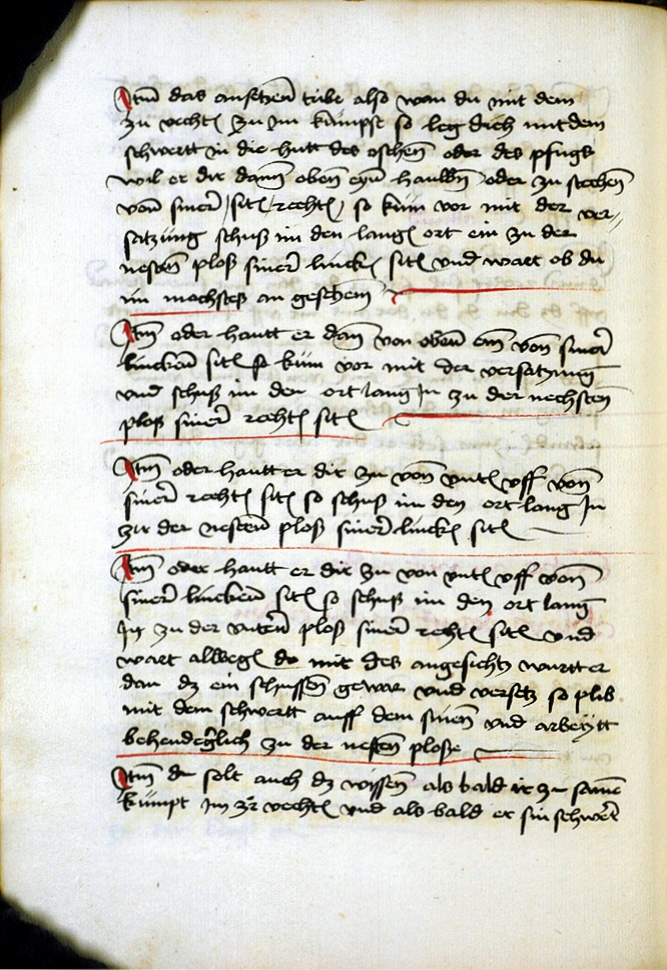 Itm das ansetzen tribe also wan du mit dem
zu vecht zu Im kumpst so leg dich mit dem
schwertt in die hutt des ochsen oder des pflugs
wil er dir dann oben eyn hauwen oder zu stechen
von siner sit recht so kum vor mit der ver
satzung schuß im den lang ort ein zu der
nesten ploß siner linck sit und wart ob du
im mochtest an
Itm oder hautt er dan von oben ein von siner
lincken sit so kum vor mit der versatzung
und schuß im den ort lang In zu der nechsten
ploß siner recht sit
Itm oder hautt er dir zu von unt uff von
siner recht sit so schuß im den ort lang In
zu der nesten ploß siner linck sit
Itm oder hautt er dir zu von unt uff von
siner lincken sit so schuß im den ort lang
In zu der untern ploß siner recht sit und
wart allweg du mit des angesicht wurtt er
dan dz ein schussen gewar und versetz so plib
mit dem schwertt auff dem sinen und arbeytt
behendeglich zu der nesten ploße
Itm du solt auch dz wissen als bald ir zu samen
kumpt Im zu vecht und als bald er sin schwert